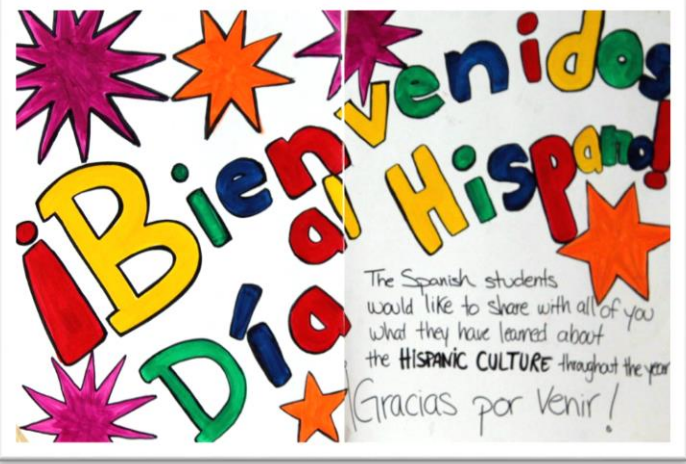 ¡Bienvenidos
al
Día Hispano!
The Spanish students
would like to share with all of you
what they have learned about
the HISPANIC CULTURE throughout the year
¡Gracias por venir!